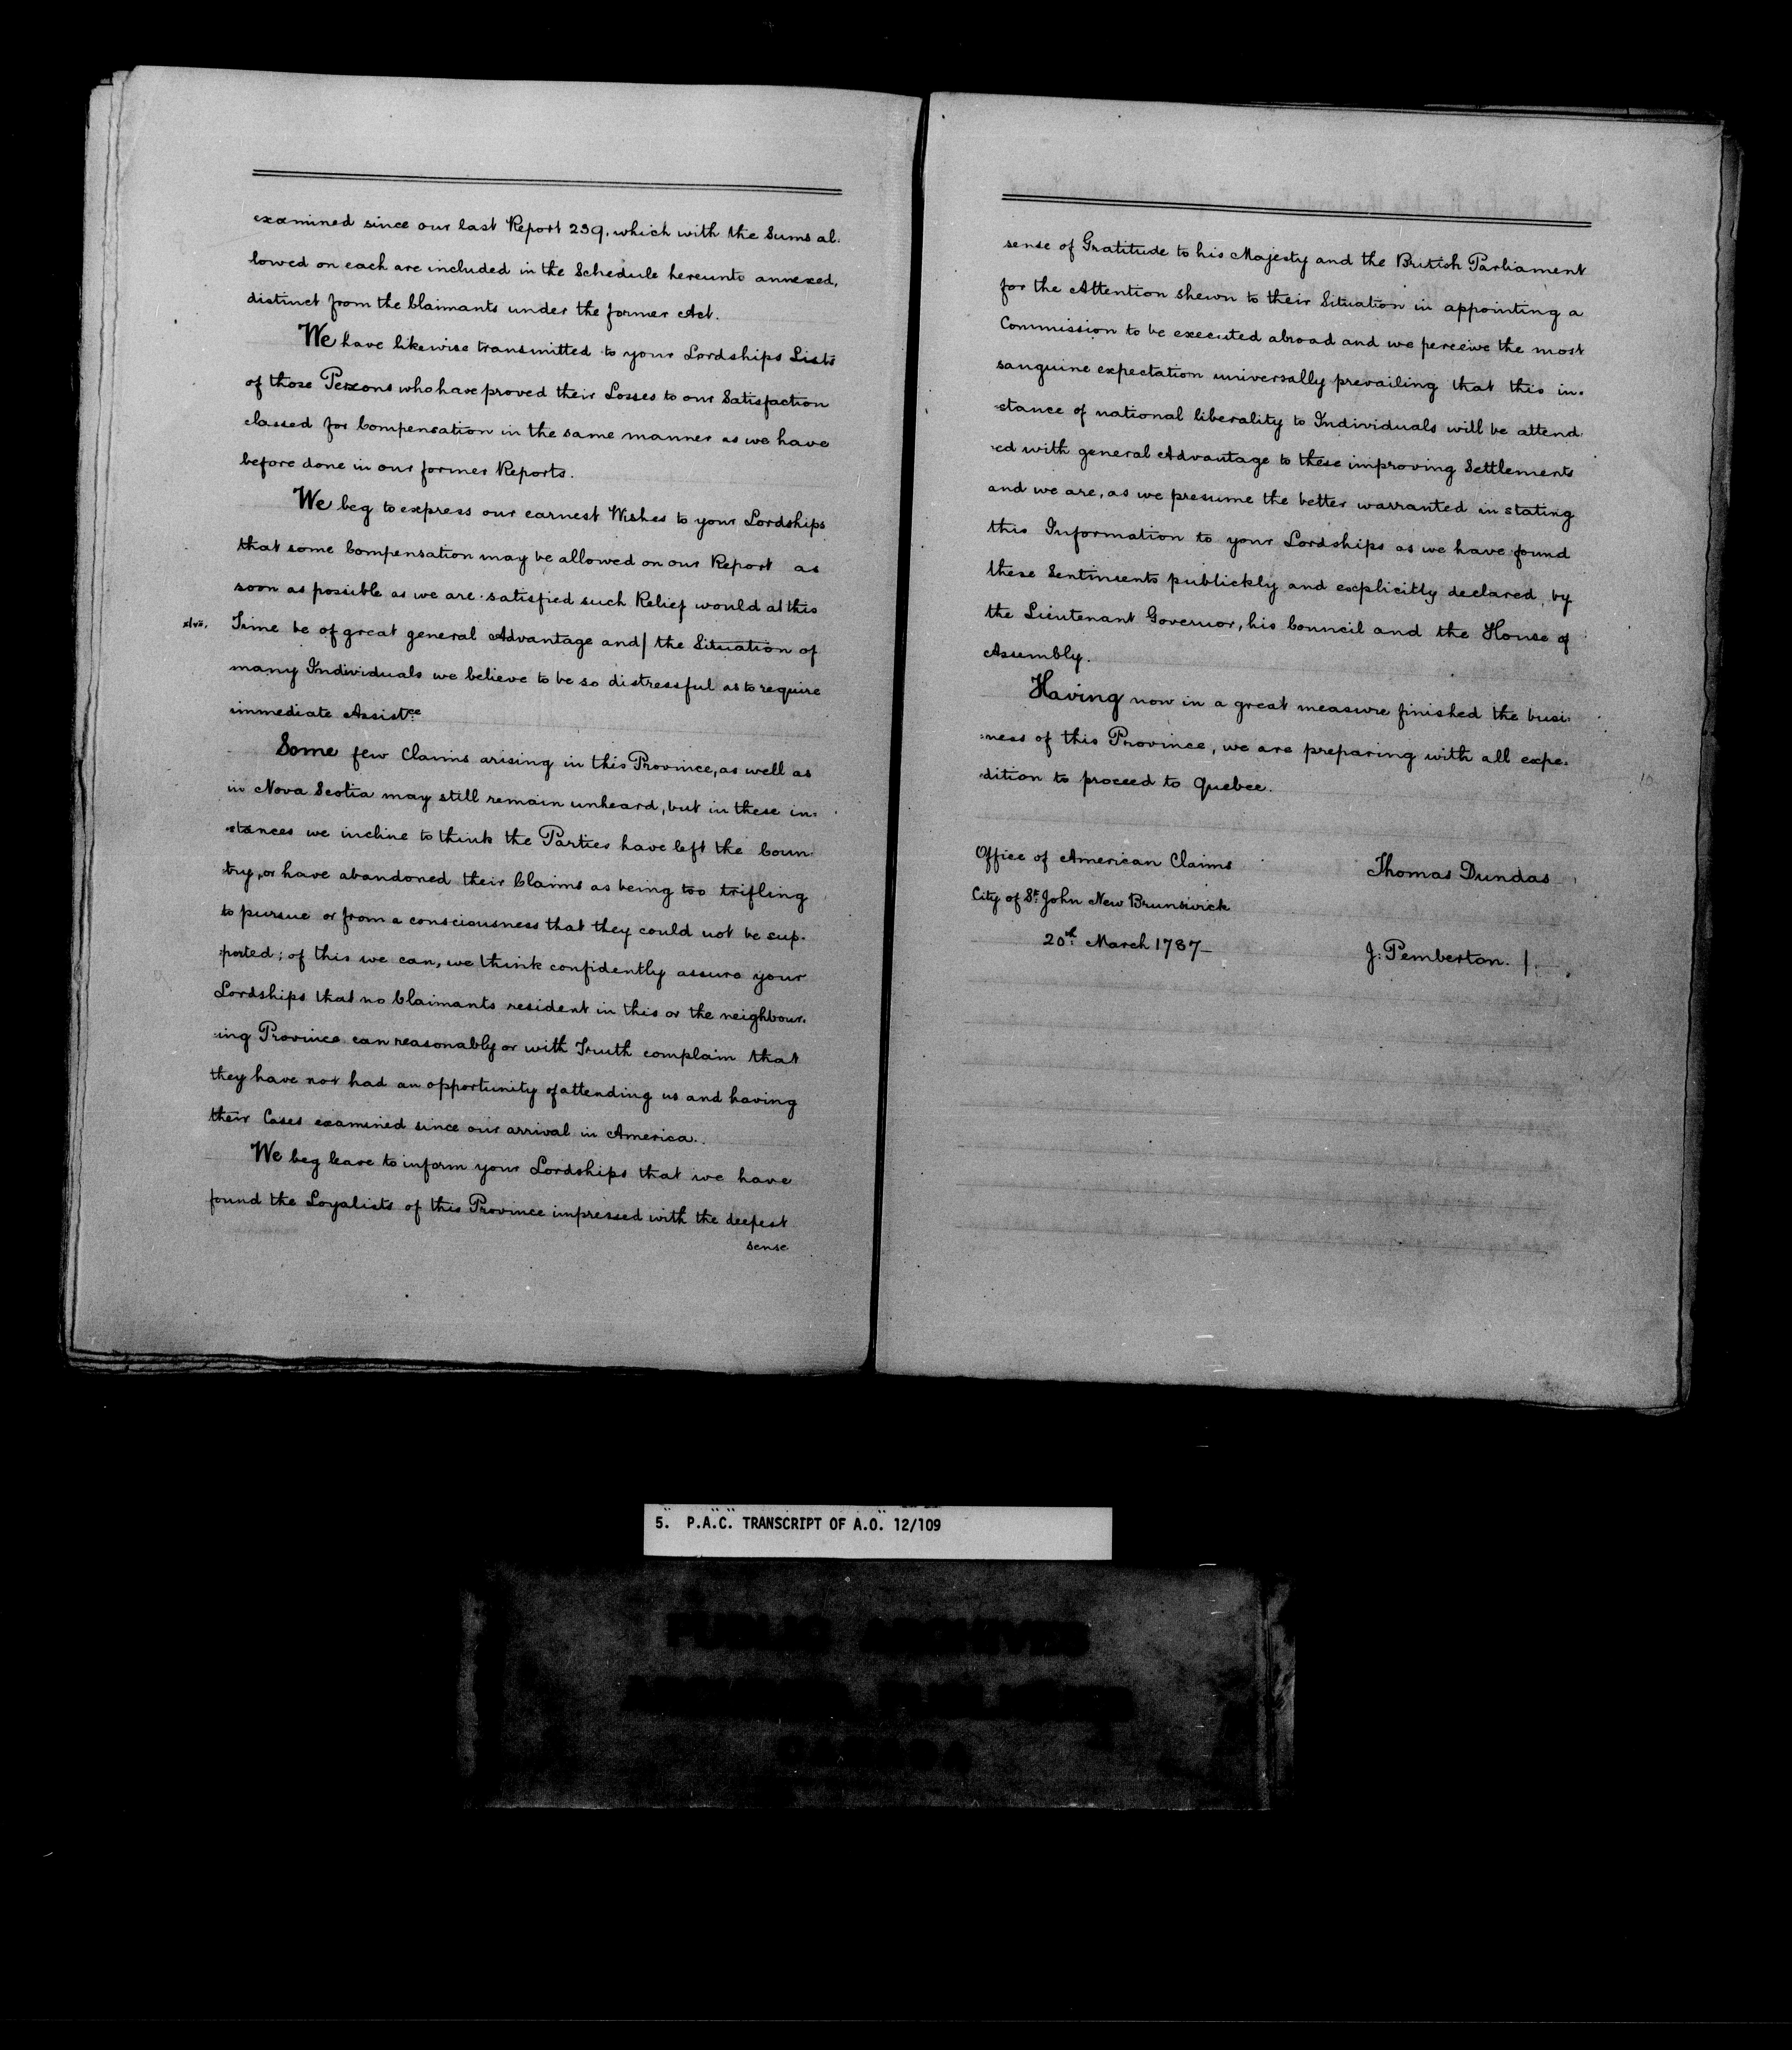 examined since our last Report 239, which with the Sums al-
lowed on each are included in the Schedule hereunto annexed,
distinct from the Claimants under the former Act.
We have likewise transmitted to your Lordships Lists
of those Persons who have proved their Losses to our Satisfaction
classed for Compensation in the same manner as we have
before done in our former Reports.
We beg to express our earnest Wishes to your Lordships
that some Compensation may be allowed on our Report as
soon as possible as we are satisfied such Relief would at this
xlvii. Time be of great general Advantage and/ the Situation of
many Individuals we believe to be so distressful as to require
immediate Assistce
Some few Claims arising in this Province, as well as
in Nova Scotia may still remain unheard, but in these in-
-stances we incline to think the Parties have left the Coun-
try, or have abandoned their Claims as being too trifling
to pursue or from a consciousness that they could not be sup-
ported; of this we can, we think confidently assure your
Lordships that no Claimants resident in this or the neighbour-
-ing Province can reasonably or with Truth complain that
they have not had an opportunity of attending us and having
their Cases examined since our arrival in America.
We beg leave to inform your Lordships that we have
found the Loyalists of this Province impressed with the deepest
sense
sense of Gratitude to his Majesty and the British Parliament
for the Attention shewn to their Situation in appointing a
Commission to be executed abroad and we perceive the most
sanguine expectation universally prevailing that this in-
-stance of national liberality to Individuals will be attend-
-ed with general Advantage to these improving Settlements
and we are, as we presume the better warranted in stating
this Information to your Lordships as we have found
these Sentiments publickly and explicitly declared, by
the Lieutenant Governor, his Council and the House of
Assembly.
Having now in a great measure finished the busi-
-ness of this Province, we are preparing with all expe-
-dition to proceed to Quebec.
Office of American Claims
Thomas Dundas
City of St. John New Brunswick
20th March 1787—
J: Pemberton. /.
5. P.A.C. TRANSCRIPT OF A.O. 12/109
PUBLIC ARCHIVES
CANADA